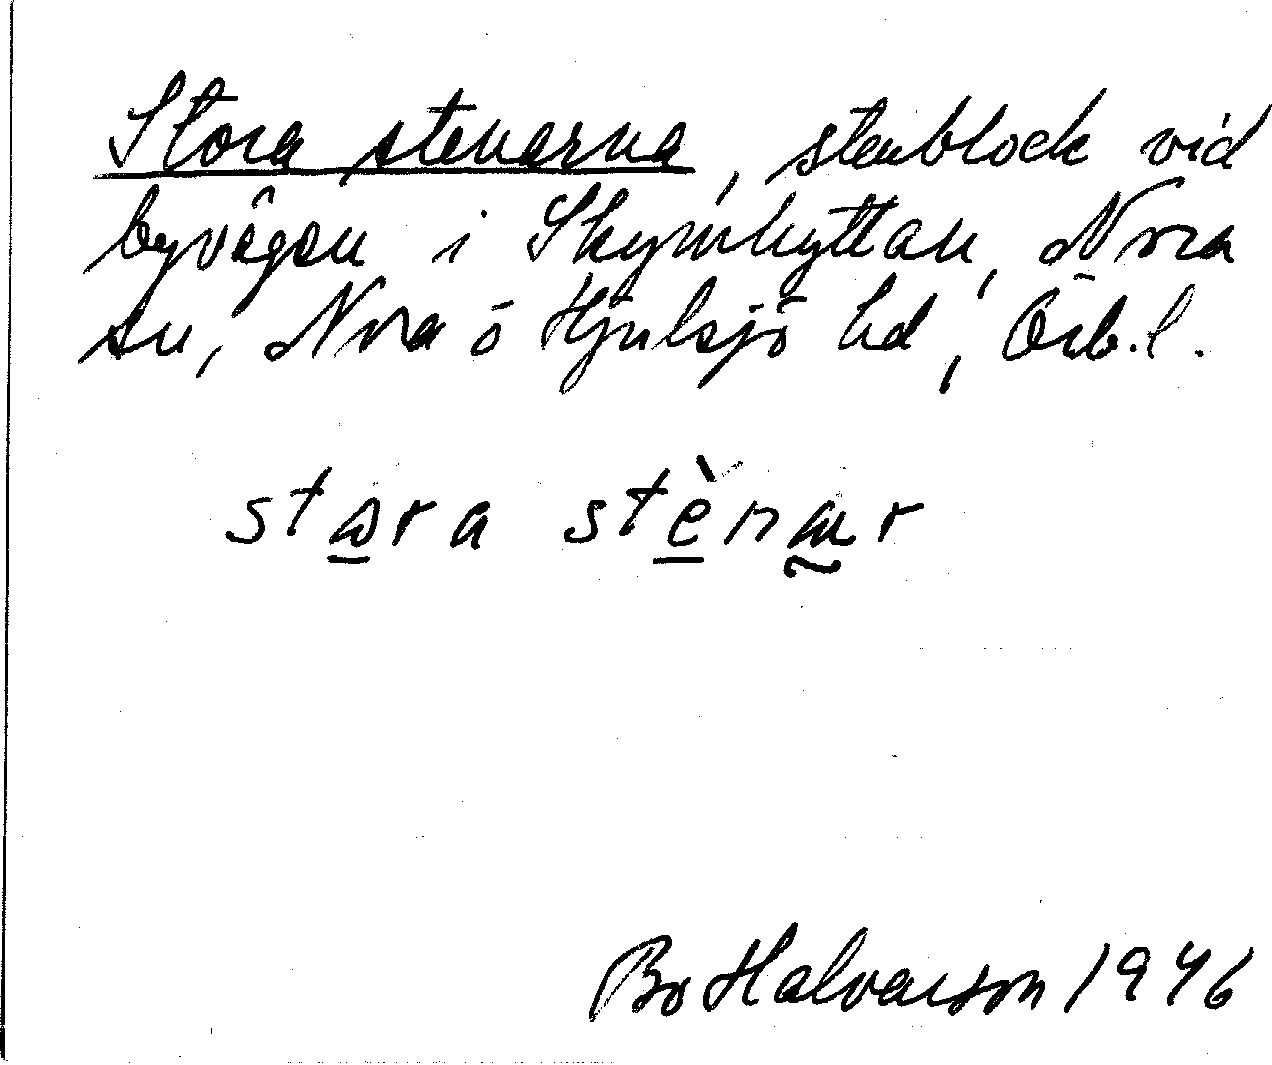 Stora stenarna, stenblock vid
byvägen i Skymhyttan, Nora
sn, Nora ö Hjulsjö hd, Örb.l.
stora stènar
Bo Halvarson 1946